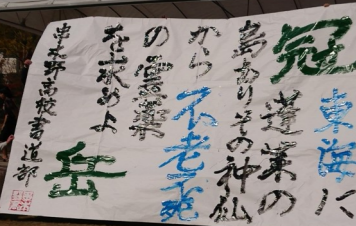 東海に
冠
蓬莱の
島ありその神仙
から
不老不死
の霊薬
を求めよ
岳
串木野高校書道部